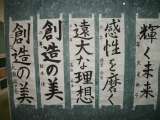 輝く未来
感性を磨く
遠大な理想
創造の美
創造の美